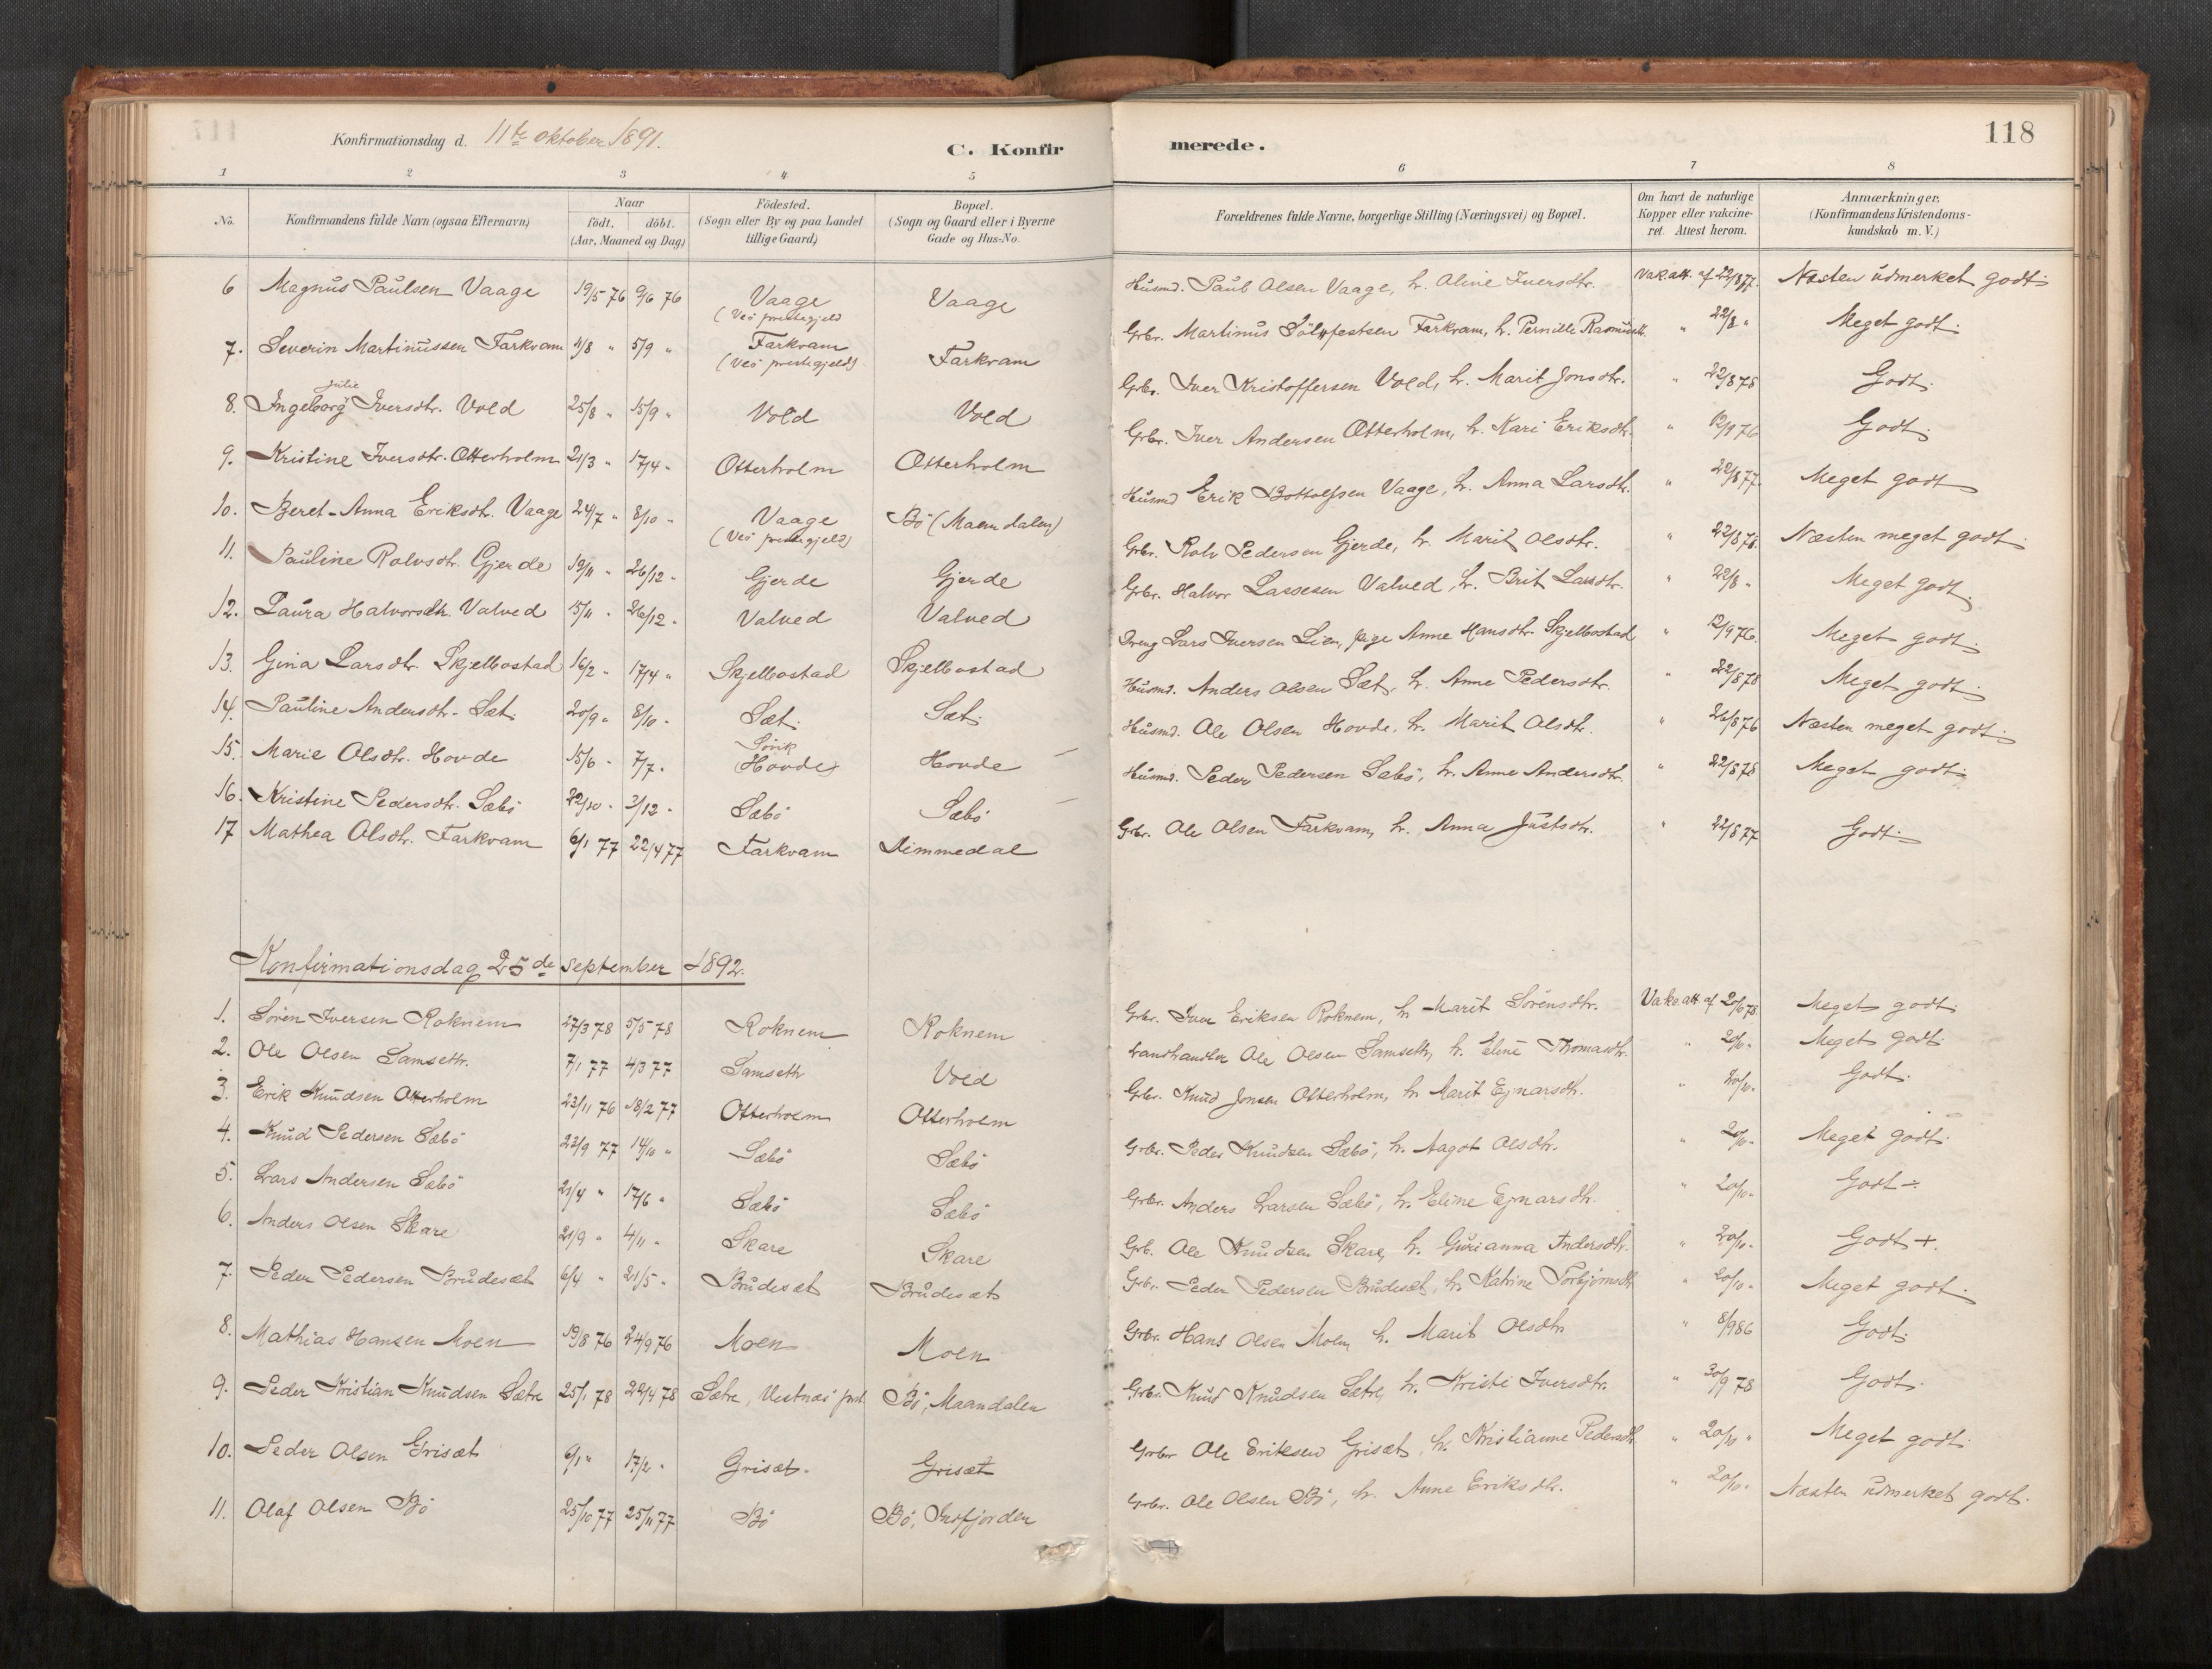 Konfirmationsdag d. 11te oktober 1891.
C. Konfirmerede.
118
1 2 3 4 5 6 7 8
No. Konfirmandens fulde Navn (ogsaa Efternavn) Naar födt. döbt. (Aar, Maaned og Dag) Födested. (Sogn eller By og paa Landet tillige Gaard) Bopæl. (Sogn og Gaard eller i Byerne Gade og Hus-No. Forældrenes fulde Navne, borgerlige Stilling (Næringsvei) og Bopæl. Om havt de naturlige Kopper eller vakcineret. Attest herom. Anmærkninger. (Konfirmandens Kristendomskundskab m. V.)
6 Magnus Paulsen Vaage 19/5 76 9/6 76 Vaage (Veö prestegjeld Vaage Husmd. Paul Olsen Vaage, h. Aline Iversdtr. Vak att. af 22/8 77. Næsten udmerket godt
7. Severin Martinussen Farkvam 4/8 " 5/9 " Farkvam (Veö prestegjeld) Farkvam Grbr. Martinus Sölvfestsen Farkvam, h. Pernille Rasmusdtr. " 22/8 " Meget godt.
8. Ingeborg Julie Iversdtr. Vold 25/8 " 15/9 " Vold Vold Grbr. Iver Kristoffersen Vold, h. Marit Jonsdtr. " 22/8 78 Godt.
9. Kristine Iversdtr. Otterholm 21/3 " 17/4 " Otterholm Otterholm Grbr. Iver Andersen Otterholm, h. Kari Eriksdtr. " 12/9 76 Godt.
10. Beret-Anna Eriksdtr. Vaage 24/7 " 8/10 " Vaage (Veö prestegjeld) Bö (Maandalen) Husmd Erik Bottolfsen Vaage, h. Anna Larsdtr. " 22/8 77. Meget godt
11. Pauline Rolvsdtr. Gjerde 19/11 " 26/12 " Gjerde Gjerde Grbr. Rolv Pedersen Gjerde, h. Marit Olsdtr. " 22/8 78. Næsten meget godt
12. Laura Halvorsdtr. Valved 15/11 " 26/12 " Valved Valved Grbr. Halvor Lassesen Valved, h. Brit Larsdtr. " 22/8 " Meget godt.
13. Gina Larsdtr. Skjelbostad 16/2 " 17/4 " Skjelbostad Skjelbostad Dreng Lars Iversen Lien, pige Anne Hansdtr. Skjelbostad " 12/9 76. Meget godt.
14. Pauline Andersdtr. Sæt. 20/9 " 8/10 " Sæt. Sæt. Husmd. Anders Olsen Sæt, h. Anne Pedersdtr. " 22/8 78 Meget godt.
15. Marie Olsdtr. Hovde 15/6 " 7/7 " Hovde Hovde Husmd. Ole Olsen Hovde, h. Marit Olsdtr. " 22/8 76 Næsten meget godt.
16. Kristine Pedersdtr. Sæbö 22/10 " 3/12 " Sæbö Sæbö Husmd. Peder Pedersen Sæbö, h. Anne Andersdtr. " 22/8 78 Meget godt.
17 Mathea Olsdtr. Farkvam 6/1 77 22/4 77 Farkvam Dimmedal Grbr. Ole Olsen Farkvam, h. Anna Justsdtr. " 22/8 77 Godt.
Konfirmationsdag 25de september 1892.
1. Sören Iversen Roknem 27/3 78 5/5 78 Roknem Roknem Grbr. Iver Eriksen Roknem, h. Marit Sörensdtr. Vakc. att af 20/10 78. Meget godt.
2. Ole Olsen Samseth. 7/1 77 4/3 77 Samseth Vold Landhandler Ole Olsen Samseth, h. Eline Thomasdtr. " 20/10 " Meget godt.
3. Erik Knudsen Otterholm 23/11 76 18/2 77 Otterholm Otterholm Grbr. Knud Jonsen Otterholm, h. Marit Ejnarsdtr. " 20/10 " Godt.
4. Knud Pedersen Sæbö 23/9 77 14/10 " Sæbö Sæbö Grbr. Peder Knudsen Sæbö, h. Aagot Olsdtr. " 20/10 " Meget godt.
5. Lars Andersen Sæbö 21/4 " 17/6 " Sæbö Sæbö Grbr. Anders Larsen Sæbö, h. Eline Ejnarsdtr. " 20/10 " Godt ÷.
6. Anders Olsen Skare 21/9 " 4/11 " Skare Skare Grb. Ole Knudsen Skare, h. Gurianna Andersdtr. " 20/10 " Godt +.
7. Peder Pedersen Brudesæt 6/4 " 21/5 " Brudesæt Brudesæt Grbr. Peder Pedersen Brudesæt, h. Katrine Torbjörnsdtr. " 20/10 " Meget godt.
8. Mathias Hansen Moen 19/8 76 24/9 76 Moen Moen Grbr. Hans Olsen Moen, h. Marit Olsdtr. " 8/9 86 Godt.
9. Peder Kristian Knudsen Sætre 25/1 78 22/4 78 Sætre, Vestnæs prst. Bö, Maandalen Grbr. Knud Knudsen Sætre, h. Kristi Iversdtr. " 30/9 78 Godt.
10. Peder Olsen Grisæt 9/1 " 17/2 " Grisæt. Grisæt Grbr. Ole Eriksen Grisæt, h. Kristianne Pedersdtr. " 20/10 " Meget godt.
11. Olaf Olsen Bö 25/10 77 25/11 77 Bö Bö, Insfjorden Grbr. Ole Olsen Bö, h. Anne Eriksdtr. " 20/10 " Næsten udmerket godt.